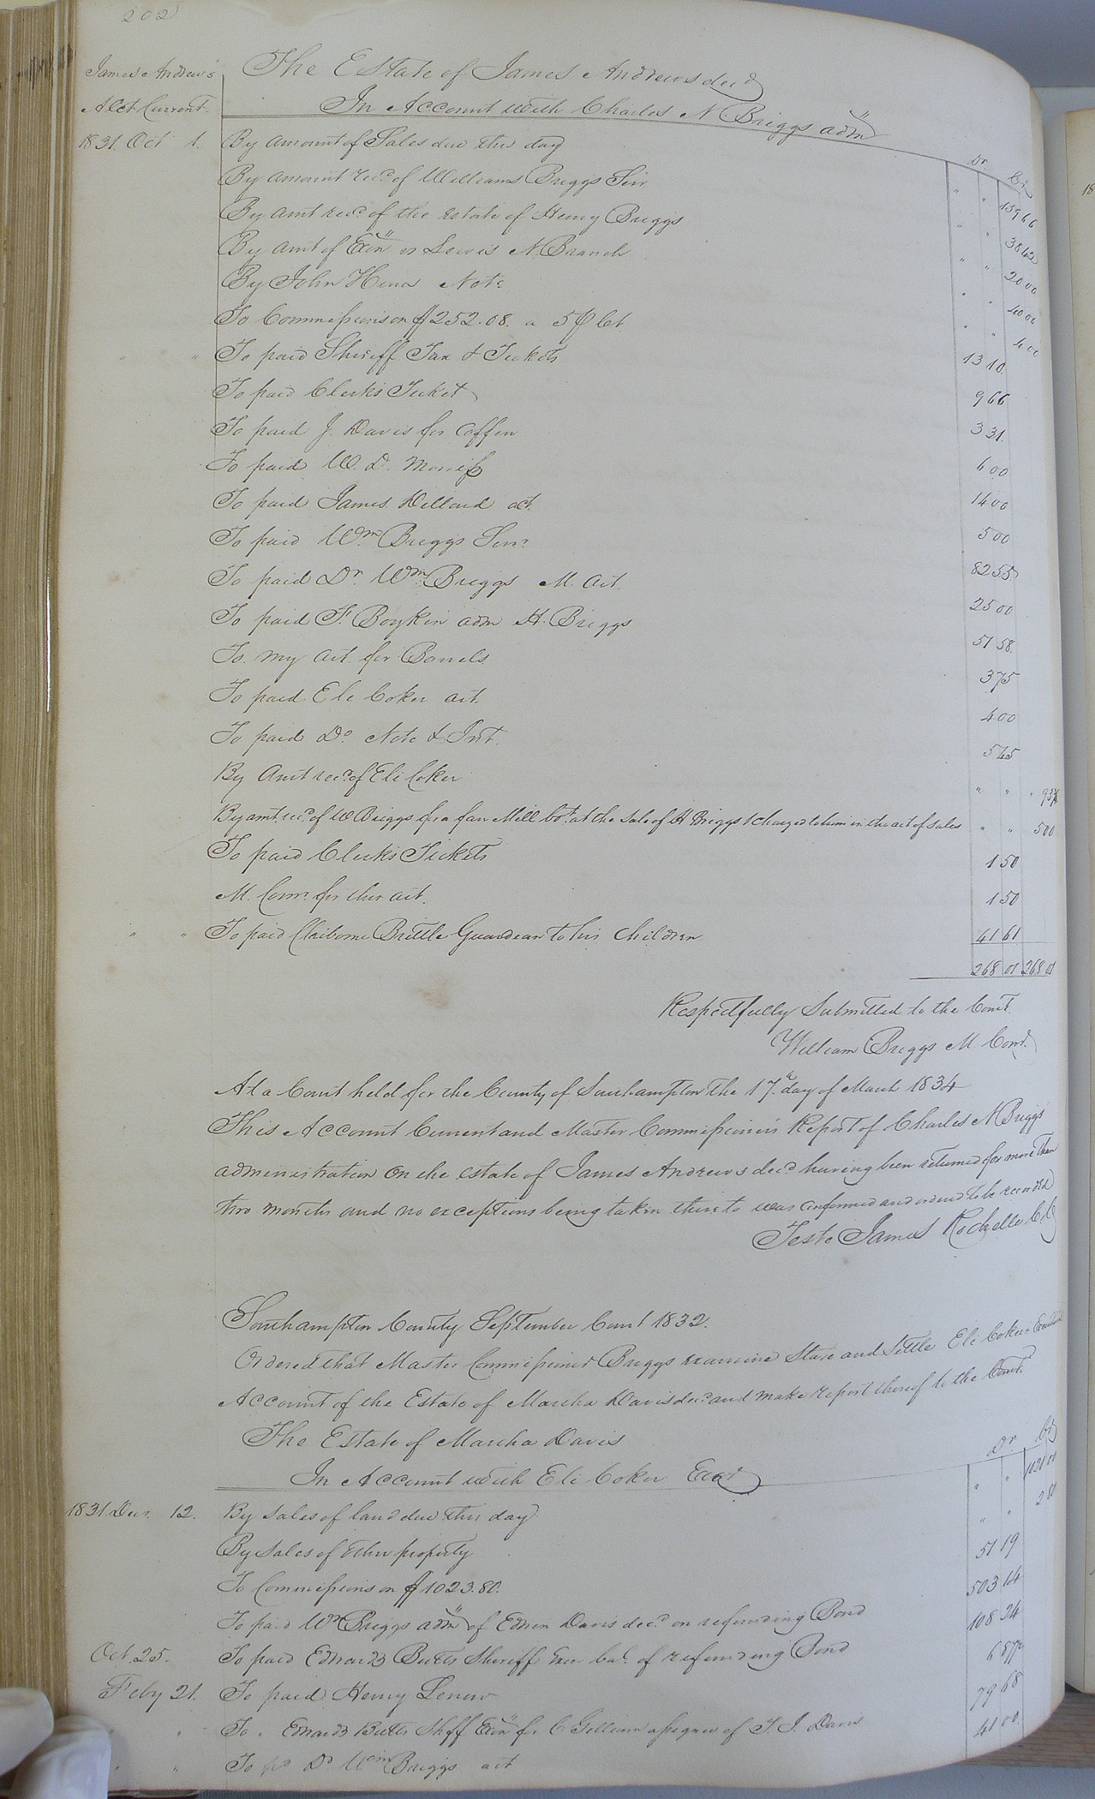 202
James Andrew's
Acct Current
The Estate of James Andrews decd
In Account with Charles N Briggs admr
Dr Cr
1831 Oct 1. By amount of Sales due this day 159 66
By amount recd of Williams Briggs Senr 38 42
By amt recd of the estate of Henry Briggs 20 00
By amt of Exn vs Lewis N. Branch 40 00
By John Note 4 00
To Commissions on $252.08. a 5 P Ct 13 10
To paid Sheriff Tax & Tickets 9 66
To paid Clerks Ticket 3 31
To paid J. Davis for Coffin 6 00
To paid W. D. Morriss 14 00
To paid James Dillard act. 5 00
To paid Wm Briggs Senr. 82 55
To paid Dr. Wm Briggs M. act 25 00
To paid F. Boykin adm H. Briggs 51 58.
To. my act. for Barrels 3 75
To paid Eli Coker act. 4 00
To paid Do. Note & Inst. 5 45
By Amt recd of Eli Coker 93¾
By amt. recd of W Briggs for a fan Mill bot. at the sale of H Briggs & charged to him in the act of sales 5 00
To paid Clerks Tickets 1 50
M. Comr. for this act. 1 50
" " To paid Claiborne Brittle Guardian to his Children 41 61
268 01 268 01
Respectfully Submitted to the Court.
William Briggs M Comr.
At a Court held for the County of Southampton the 17th day of March 1834
This Account Current and Master Commissioner's Report of Charles N Briggs'
administration on the estate of James Andrews decd having been returned for more than
two months and no exceptions being taken thereto was confirmed and ordered to be recorded
Teste James Rochelle CC
Southampton County September Court 1832.
Ordered that Master Commissioner Briggs examine State and Settle Eli Coker
Account of the Estate of Martha Davis decd and make report thereof to the Court.
The Estate of Martha Davis
In Account with Eli Coker Exor
Dr Cr
1831 Decr. 12. By Sales of land due this day
By Sales of other property
To Commissions on $1023.80. 51 19
To paid Wm Briggs admr of Edwin Davis decd on refunding Bond 503 14
Oct. 25. To paid Edwards Butts Sheriff bal. of refunding Bond 108 34
Feby 21. To paid Henry
" " To. Edwards Butts Shff Exn for C Gilliam assignee of T. J. Davis 79 68
" " To pd Dr Wm Briggs act 41 00